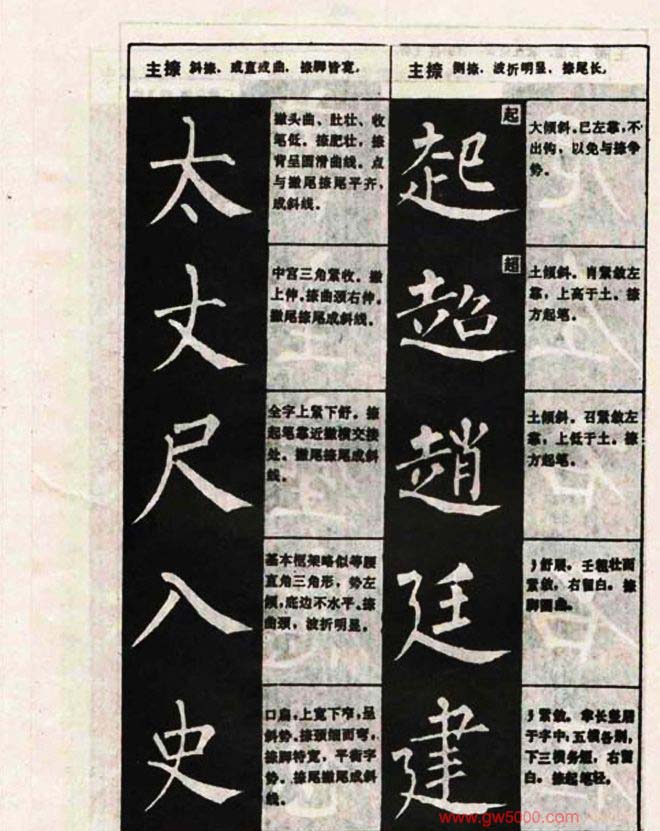 主捺 斜捺。或直或曲，捺脚皆宽。
太
撇头曲、肚壮、收
笔低。捺肥壮，捺
背呈圆滑曲线。点
与撇尾捺尾平齐，
成斜线。
丈
中宫三角紧收。撇
上伸。捺曲颈右伸。
撇尾捺尾成斜线。
尺
全字上紧下舒。捺
起笔靠近撇横交接
处。撇尾捺尾成斜
线。
入
基本框架略似等腰
直角三角形，势左
倾，底边不水平。捺
曲颈，波折明显。
史
口扁，上宽下窄，呈
斜势。捺颈细而弯，
捺脚特宽，平衡字
势。捺尾撇尾成斜
线。
主捺 侧捺。波折明显，捺尾长。
起
起
大倾斜。已左靠，不
出钩，以免与捺争
势。
超
超
土倾斜。肖紧敛左
靠，上高于土。捺
方起笔。
趙
土倾斜。召紧敛左
靠，上低于土。捺
方起笔。
廷
舒展，壬粗壮而
紧敛，右留白。捺
脚圆曲。
建
紧敛。聿长竖居
于字中，五横各别，
下三横务短，右留
白。捺起笔轻。
www.gw5000.com